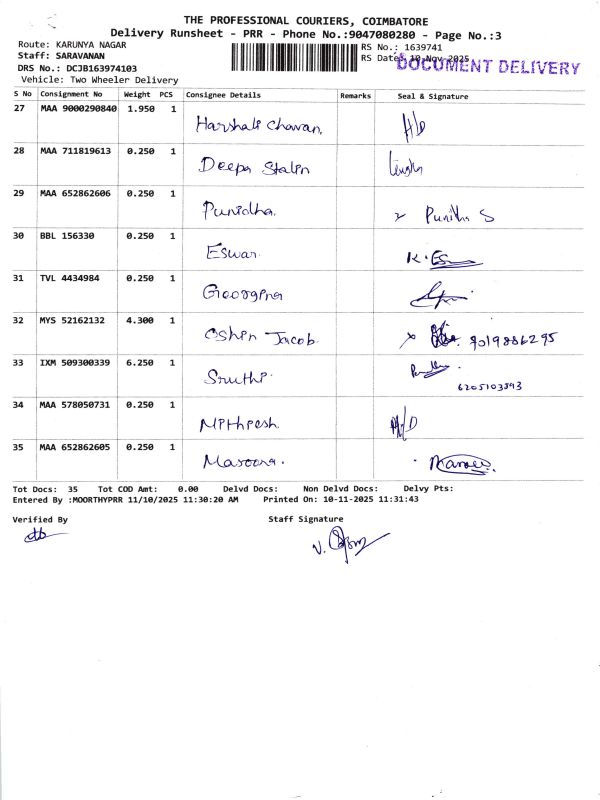 THE PROFESSIONAL COURIERS, COIMBATORE
Delivery Runsheet - PRR - Phone No.:9047080280 - Page No.:3
Route: KARUNYA NAGAR
Staff: SARAVANAN
DRS No.: DCJB163974103
Vehicle: Two Wheeler Delivery
RS No.: 1639741
RS Date: 10-Nov-2025
DOCUMENT DELIVERY
S No Consignment No Weight PCS Consignee Details Remarks Seal & Signature
27 MAA 9000290840 1.950 1 Harshali Chavan. H/D
28 MAA 711819613 0.250 1 Deepa Stalin
29 MAA 652862606 0.250 1 Punidha. Punitha S
30 BBL 156330 0.250 1 Eswar. K. Es
31 TVL 4434984 0.250 1 Georgina
32 MYS 52162132 4.300 1 Oshin Jacob. 9019886295
33 IXM 509300339 6.250 1 Sruthi. 6205103543
34 MAA 578050731 0.250 1 Mithresh. H/D
35 MAA 652862605 0.250 1
Tot Docs: 35 Tot COD Amt: 0.00 Delvd Docs: Non Delvd Docs: Delvy Pts:
Entered By :MOORTHYPRR 11/10/2025 11:30:20 AM Printed On: 10-11-2025 11:31:43
Verified By Staff Signature